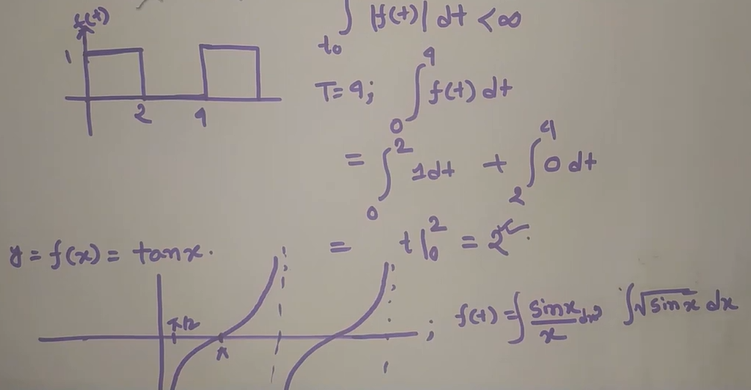 f(t)
∫ |f(t)| dt < ∞
t₀
1
2 4
T=4; ∫₀⁴ f(t) dt
= ∫₀² 1dt + ∫₂⁴ 0 dt
= t|₀² = 2
y = f(x) = tanx.
π/2
π
; f(t) = ∫ sinx/x dx ∫√sinx dx